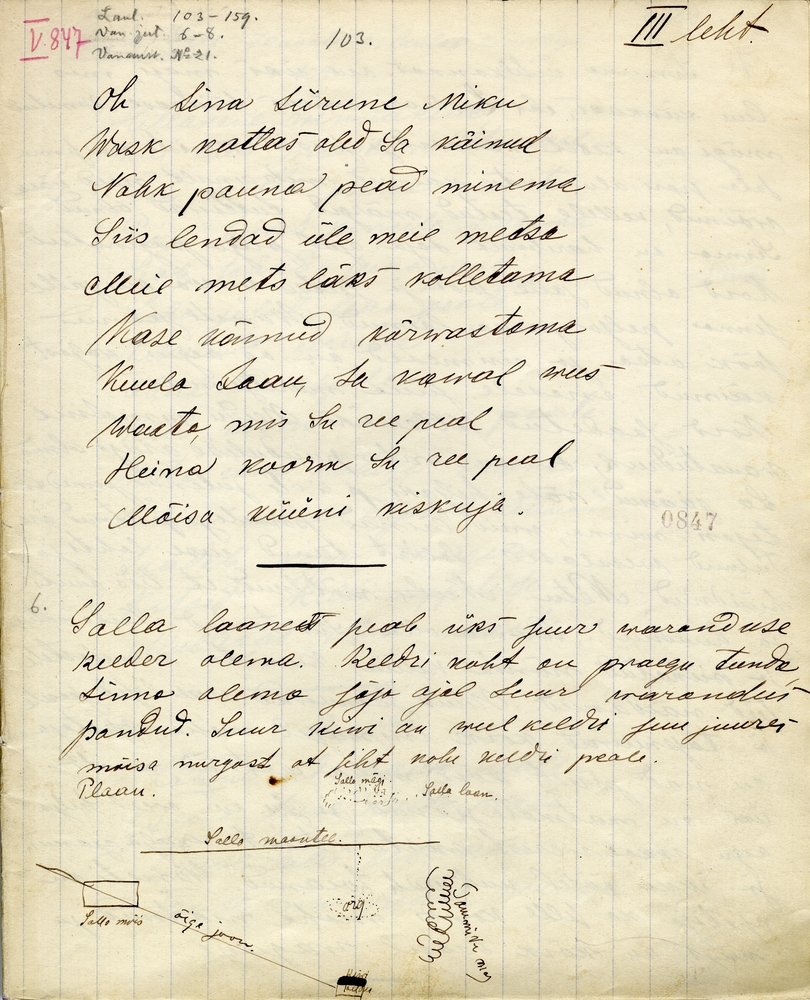 V.847
Laul. 103-159.
Van. jut. 6-8.
Vanavist. № 21.
103.
III leht.
Oh sina siirune Miku
Wask katlas oled sa käinud
Nahk pauna pead minema
Siis lendad üle meie metsa
Meie mets läks kolletama
Kase kännud kõrwastama
Kuula Jaan, sa kawal mees
Waata, mis su ree peal
Heina koorm su ree peal
Mõisa küüni kiskuja.
0847
6.
Salla laanest peab üks suur waranduse
kelder olema. Keldri koht on praegu tunda,
sinna olema sõja ajal suur warandus
pandud. Suur kiwi on weel keldri suu juures
mõisa nurgast ot siht kohe keldri peale.
Plaan.
Salla mägi
Salla laan.
Salla maantee.
Salla mõis
õige joon.
org
Tammiku mägi
Kiwi
Kelder